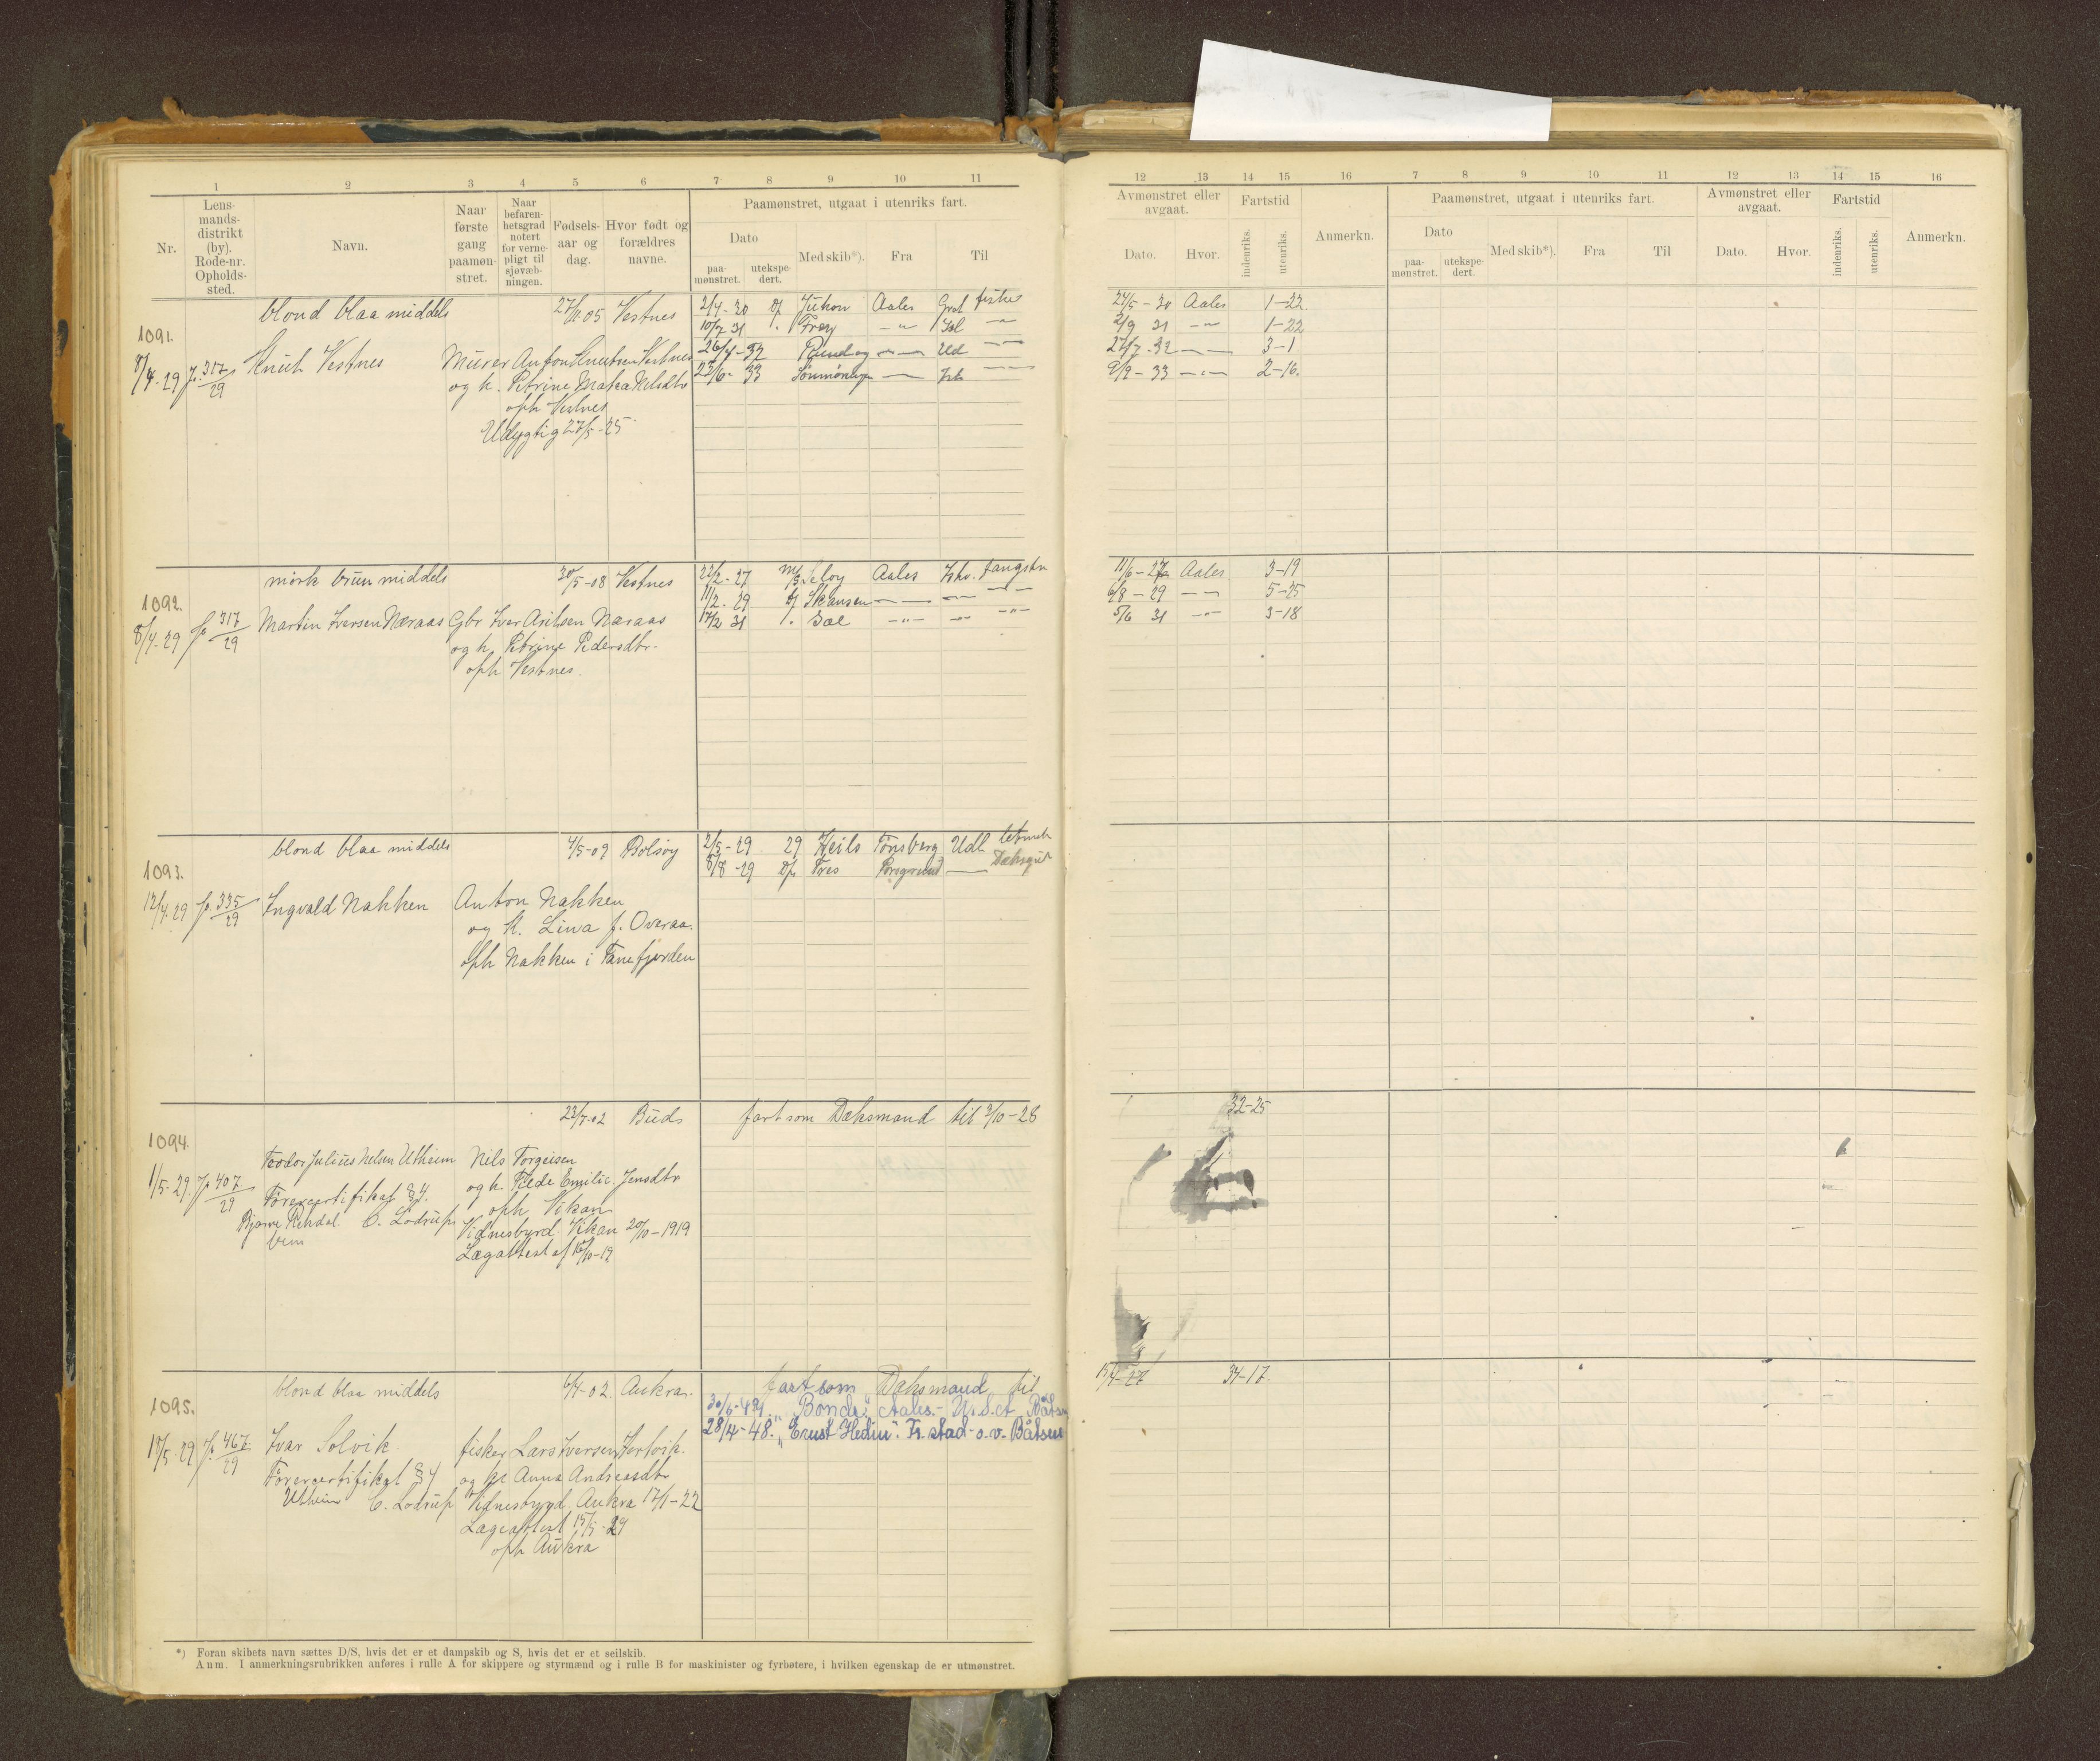 1 2 3 4 5 6 7 8 9 10 11
Nr.
Lens-
mands-
distrikt
(by).
Rode-nr.
Opholds-
sted.
Navn.
Naar
første
gang
paamøn-
stret.
Naar
befaren-
hetsgrad
notert
for verne-
pligt til
sjøvæb-
ningen.
Fødsels-
aar og
dag.
Hvor født og
forældres
navne.
Paamønstret, utgaat i utenriks fart.
Dato
paa-
mønstret.
utekspe-
dert.
Med skib*).
Fra
Til
1091.
blond blaa middels 27/11-05 Vestnes
8/4-29 J. 317/29 Knut Vestnes Murer Anton Knutsen Vestnes
og h. Petrine Matea Nilsdtr
oph Vestnes
Udygtig 27/5-25
2/4-30 Yukon Aales Grøl fisker
10/7 31 Frøy -"- Isl -"-
26/4-32 Rundøy Ud
23/6-33 Isl
1092.
mørk brun middels 30/5-08 Vestnes
8/4-29 J. 317/29 Martin Iversen Næraas Gbr Iver Arilsen Næraas
og h. Petrine Pedersdtr.
oph Vestnes.
22/2-27 M/S Seløy Aales Ishv. fangstm
11/2-29 Skansen
17/2 31 -"- -"- -"-
1093.
blond blaa middels 4/5-09 Bolsøy
12/4-29 J. 335/29 Ingvald Nakken Anton Nakken
og h. Lina f. Overaa.
oph Nakken i Fanefjorden
2/5-29 29 Tønsberg Udl letmatr
8/8-29 Fres Porsgrund Dæksgut
1094.
23/7-02 Buds
1/5-29. J. 407/29 Teodor Julius Nelsen Utheim Nils Torgeisen
og h. Emilie Jensdtr
Førercertifikat §4. oph Vikan
C. Lødrup Vidnesbyrd Vikan 20/10-1919
Lægattest af 15/10-19
fart som Dæksmand til 3/10-28
1095.
blond blaa middels 6/4-02 Aukra.
15/5-29 J. 467/29 Ivar Solvik. fisker Lars Iversen
Førercertifikat §4 og h. Anna Andreasdtr
Utheim C. Lødrup Vidnesbyrd Aukra 17/1-22
Lægeattest 15/5-29
oph Aukra
fart som Dæksmand til
"Bonde" Aales.- U.S.A.
28/4-48. "Ernst Hedin". Fr.stad - o.v. - Båtsm
*) Foran skibets navn sættes D/S, hvis det er et dampskib og S, hvis det er et seilskib.
Anm. I anmerkningsrubrikken anføres i rulle A for skippere og styrmænd og i rulle B for maskinister og fyrbøtere, i hvilken egenskap de er utmønstret.
12 13 14 15 16 7 8 9 10 11 12 13 14 15 16
Avmønstret eller
avgaat.
Dato.
Hvor.
Fartstid
indenriks.
utenriks.
Anmerkn.
Paamønstret, utgaat i utenriks fart.
Dato
paa-
mønstret.
utekspe-
dert.
Med skib*).
Fra
Til
Avmønstret eller
avgaat.
Dato.
Hvor.
Fartstid
indenriks.
utenriks.
Anmerkn.
24/5-30 Aales 1-22
2/9 31 -"- 1-22
27/7-32 3-1
9/9-33 -"- 2-16.
11/6-27 Aales 3-19
6/8-29 -"- 5-25
5/6 31 -"- 3-18
32-25
15/4-27 34-17.